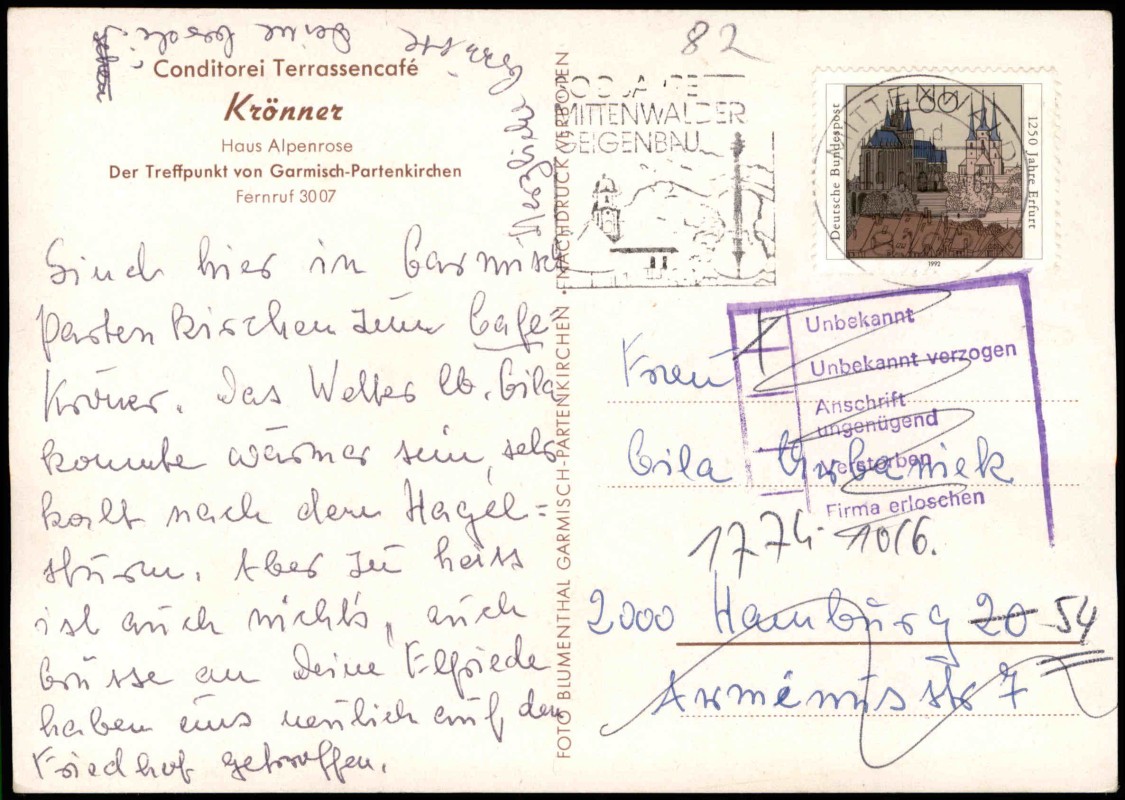 Conditorei Terrassencafé
Krönner
Haus Alpenrose
Der Treffpunkt von Garmisch-Partenkirchen
Fernruf 3007
Sind hier in Garmisch
Partenkirchen zum Cafe
Kröner. Das Wetter lb. Gila
konnte wärmer sein, sehr
kalt nach dem Hagel=
sturm. Aber zu heiss
ist auch nicht's, auch
Grüsse an Deine Elfriede
haben uns neulich auf dem
Friedhof getroffen.
Herzliche Grüsse
Deine
FOTO BLUMENTHAL GARMISCH-PARTENKIRCHEN • NACHDRUCK VERBOTEN
82
MITTENWALDER
GEIGENBAU
Deutsche Bundespost
1250 Jahre Erfurt
60
1992
Unbekannt
Unbekannt verzogen
Anschrift
ungenügend
Verstorben
Firma erloschen
Frau
Gila Urbaniek
1774- 10/6.
2000 Hamburg 20 54
Arminiusstr 7